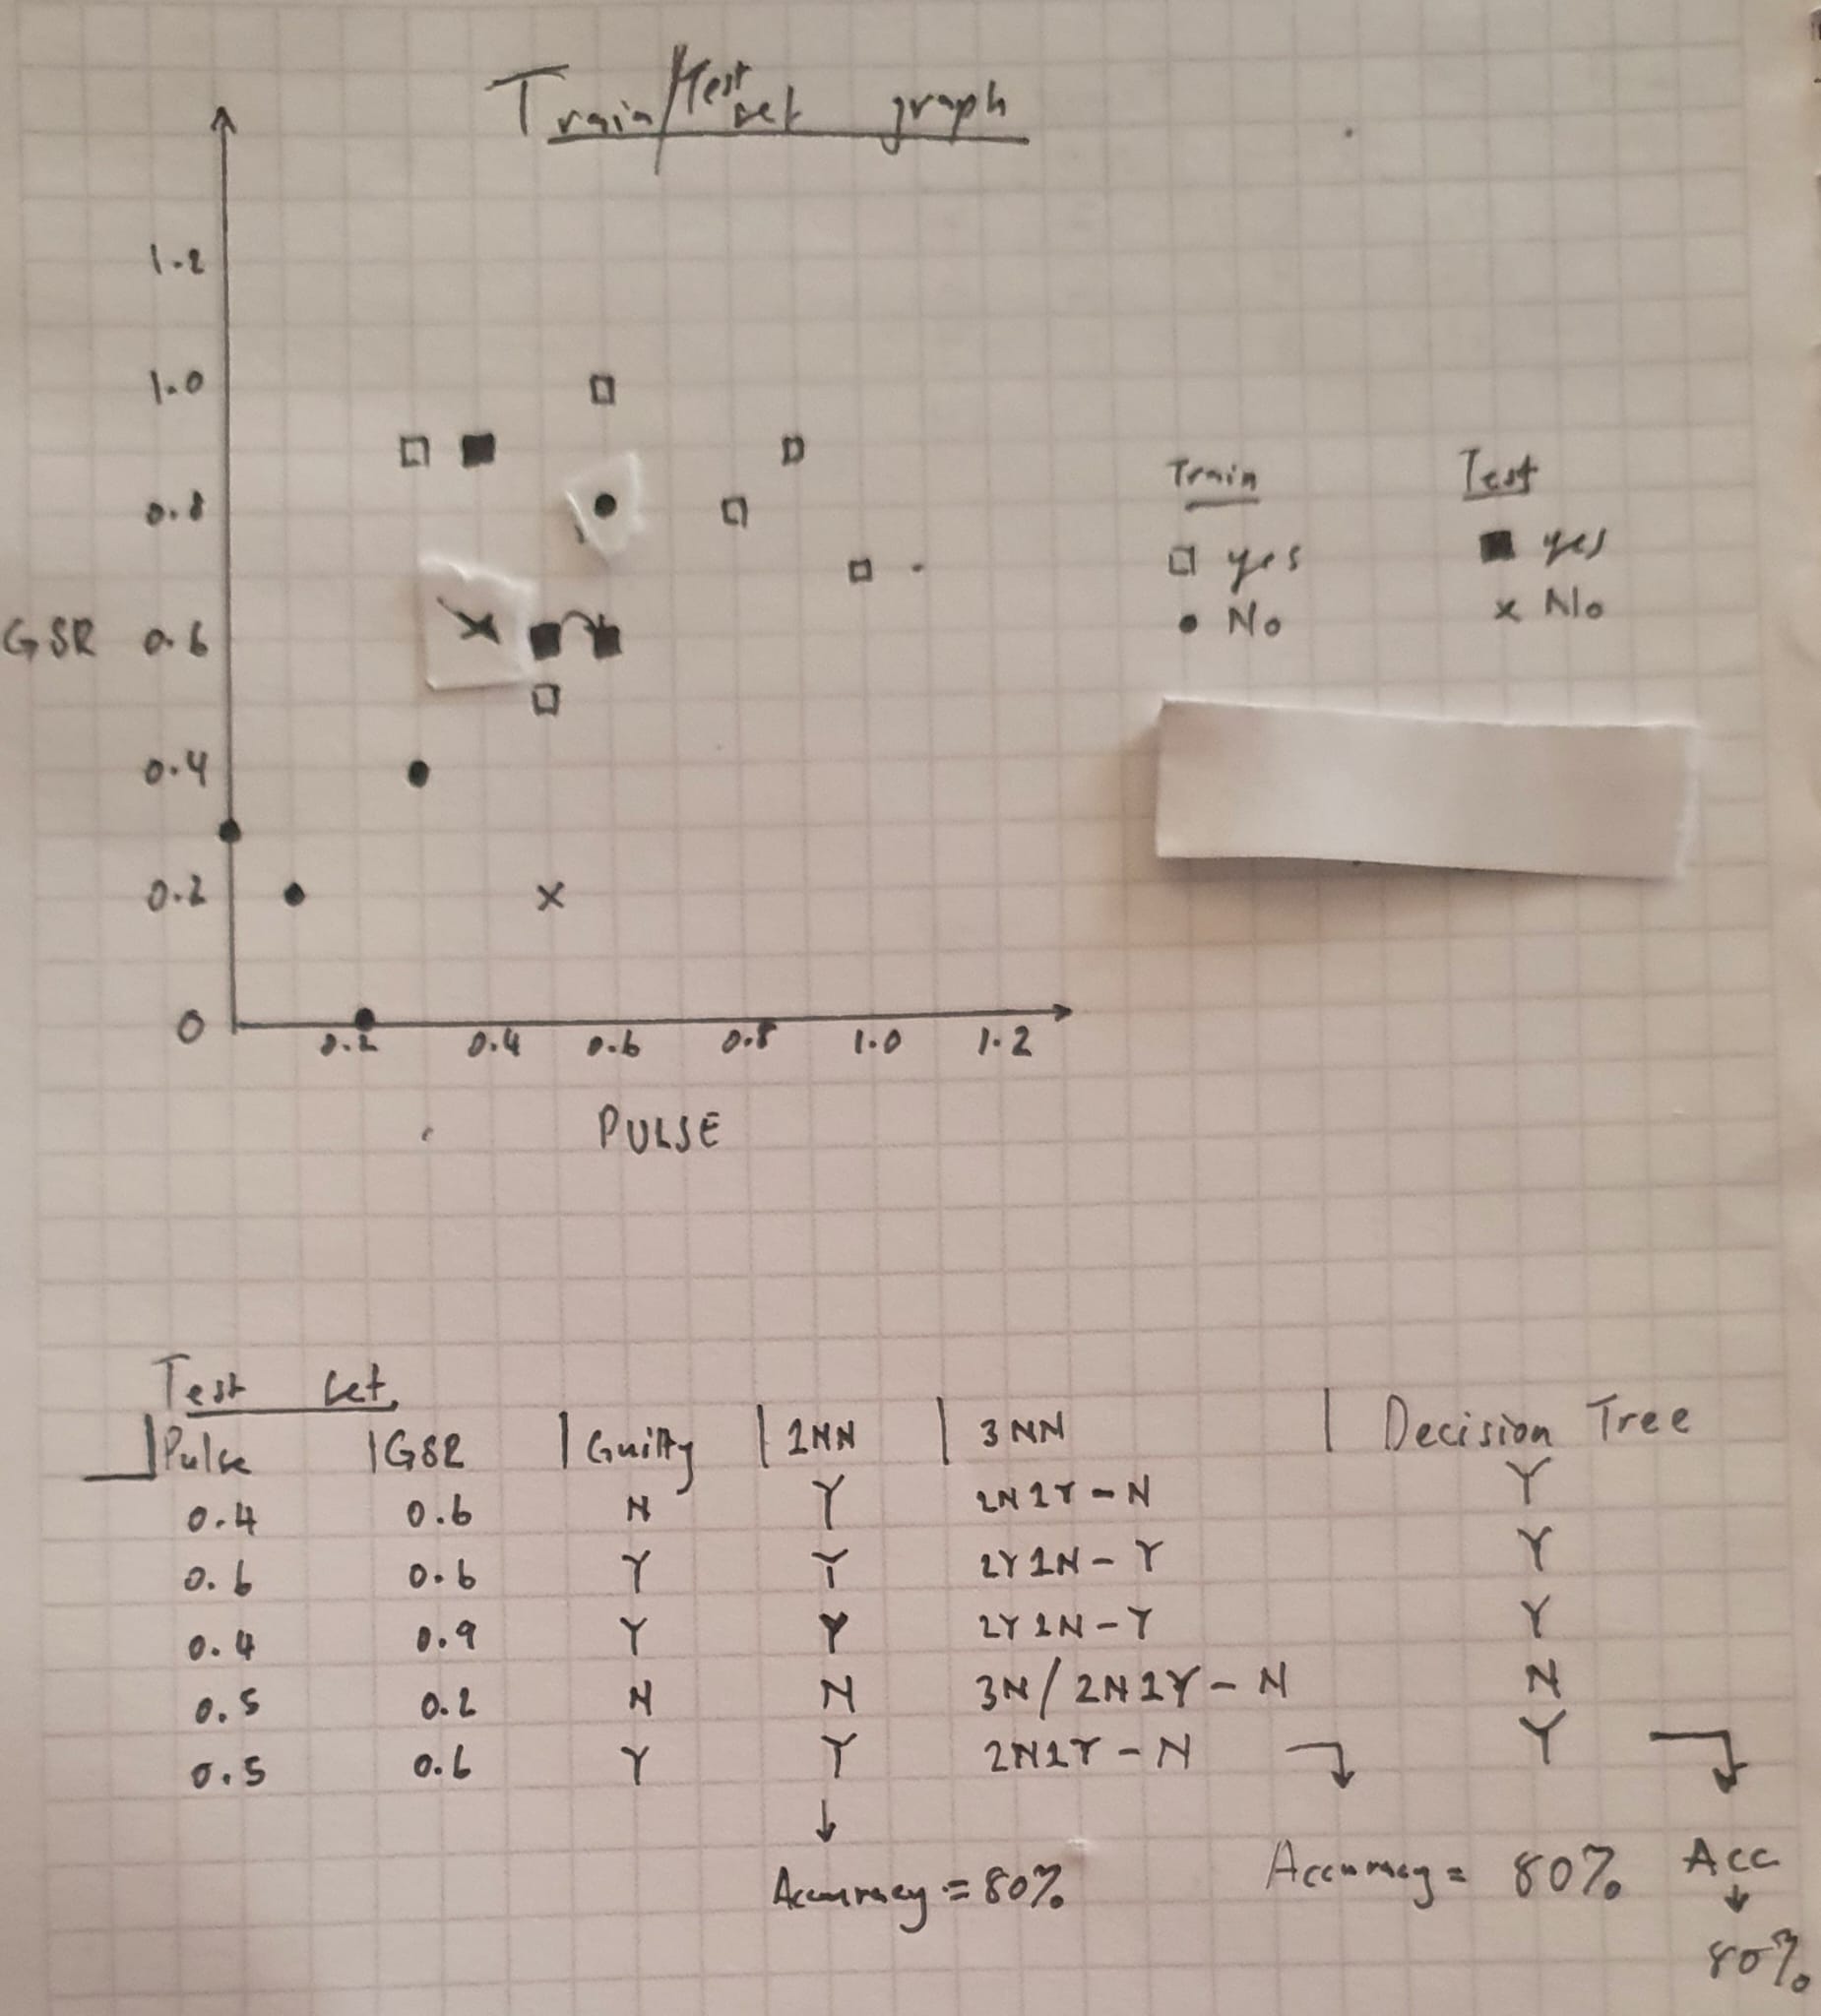 Train/Test set graph
1.2
1.0
0.8
GSR 0.6
0.4
0.2
0
0.2 0.4 0.6 0.8 1.0 1.2
PULSE
Train Test
yes yes
No No
Test set
Pulse | GSR | Guilty | 1NN | 3NN | Decision Tree
0.4 0.6 N Y 2N1Y - N Y
0.6 0.6 Y Y 2Y1N - Y Y
0.4 0.9 Y Y 2Y1N - Y Y
0.5 0.2 N N 3N/2N1Y - N N
0.5 0.6 Y Y 2N1Y - N Y
Accuracy = 80% Accuracy = 80% Acc
80%